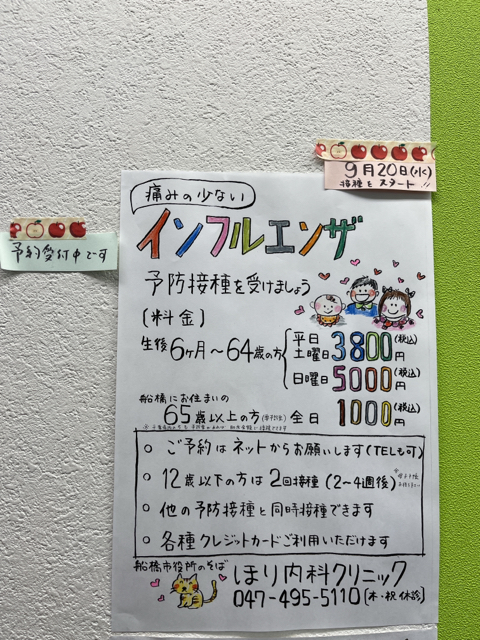 9月20日(水)
接種をスタート!!
予約受付中です
痛みの少ない
インフルエンザ
予防接種を受けましょう
〔料金〕
生後6ヶ月〜64歳の方
平日
土曜日 3800円(税込)
日曜日 5000円(税込)
船橋にお住まいの
65歳以上の方 全日 1000円(税込)
○ ご予約はネットからお願いします(TELも可)
○ 12歳以下の方は2回接種(2〜4週後)
○ 他の予防接種と同時接種できます
○ 各種クレジットカードご利用いただけます
船橋市役所のそば
ほり内科クリニック
047-495-5110(木・祝休診)